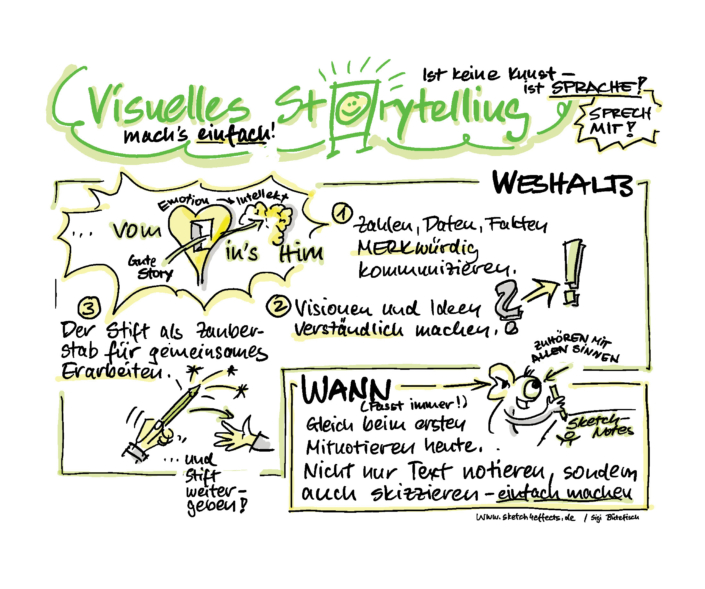 Visuelles Storytelling
mach's einfach!
Ist keine Kunst –
ist SPRACHE!
SPRECH
MIT!
WESHALB
Emotion → Intellekt
... vom
in's Hirn
Gute
Story
① Zahlen, Daten, Fakten
MERKwürdig
kommunizieren.
② Visionen und Ideen
verständlich machen.
?
!
③
Der Stift als Zauber-
stab für gemeinsames
Erarbeiten.
... und
Stift
weiter-
geben!
WANN
(Passt immer!)
Gleich beim ersten
Mitnotieren heute.
Nicht nur Text notieren, sondern
auch skizzieren – einfach machen
ZUHÖREN MIT
ALLEN SINNEN
Sketch-
Notes
www.sketch4effects.de / Sigi Bütefisch